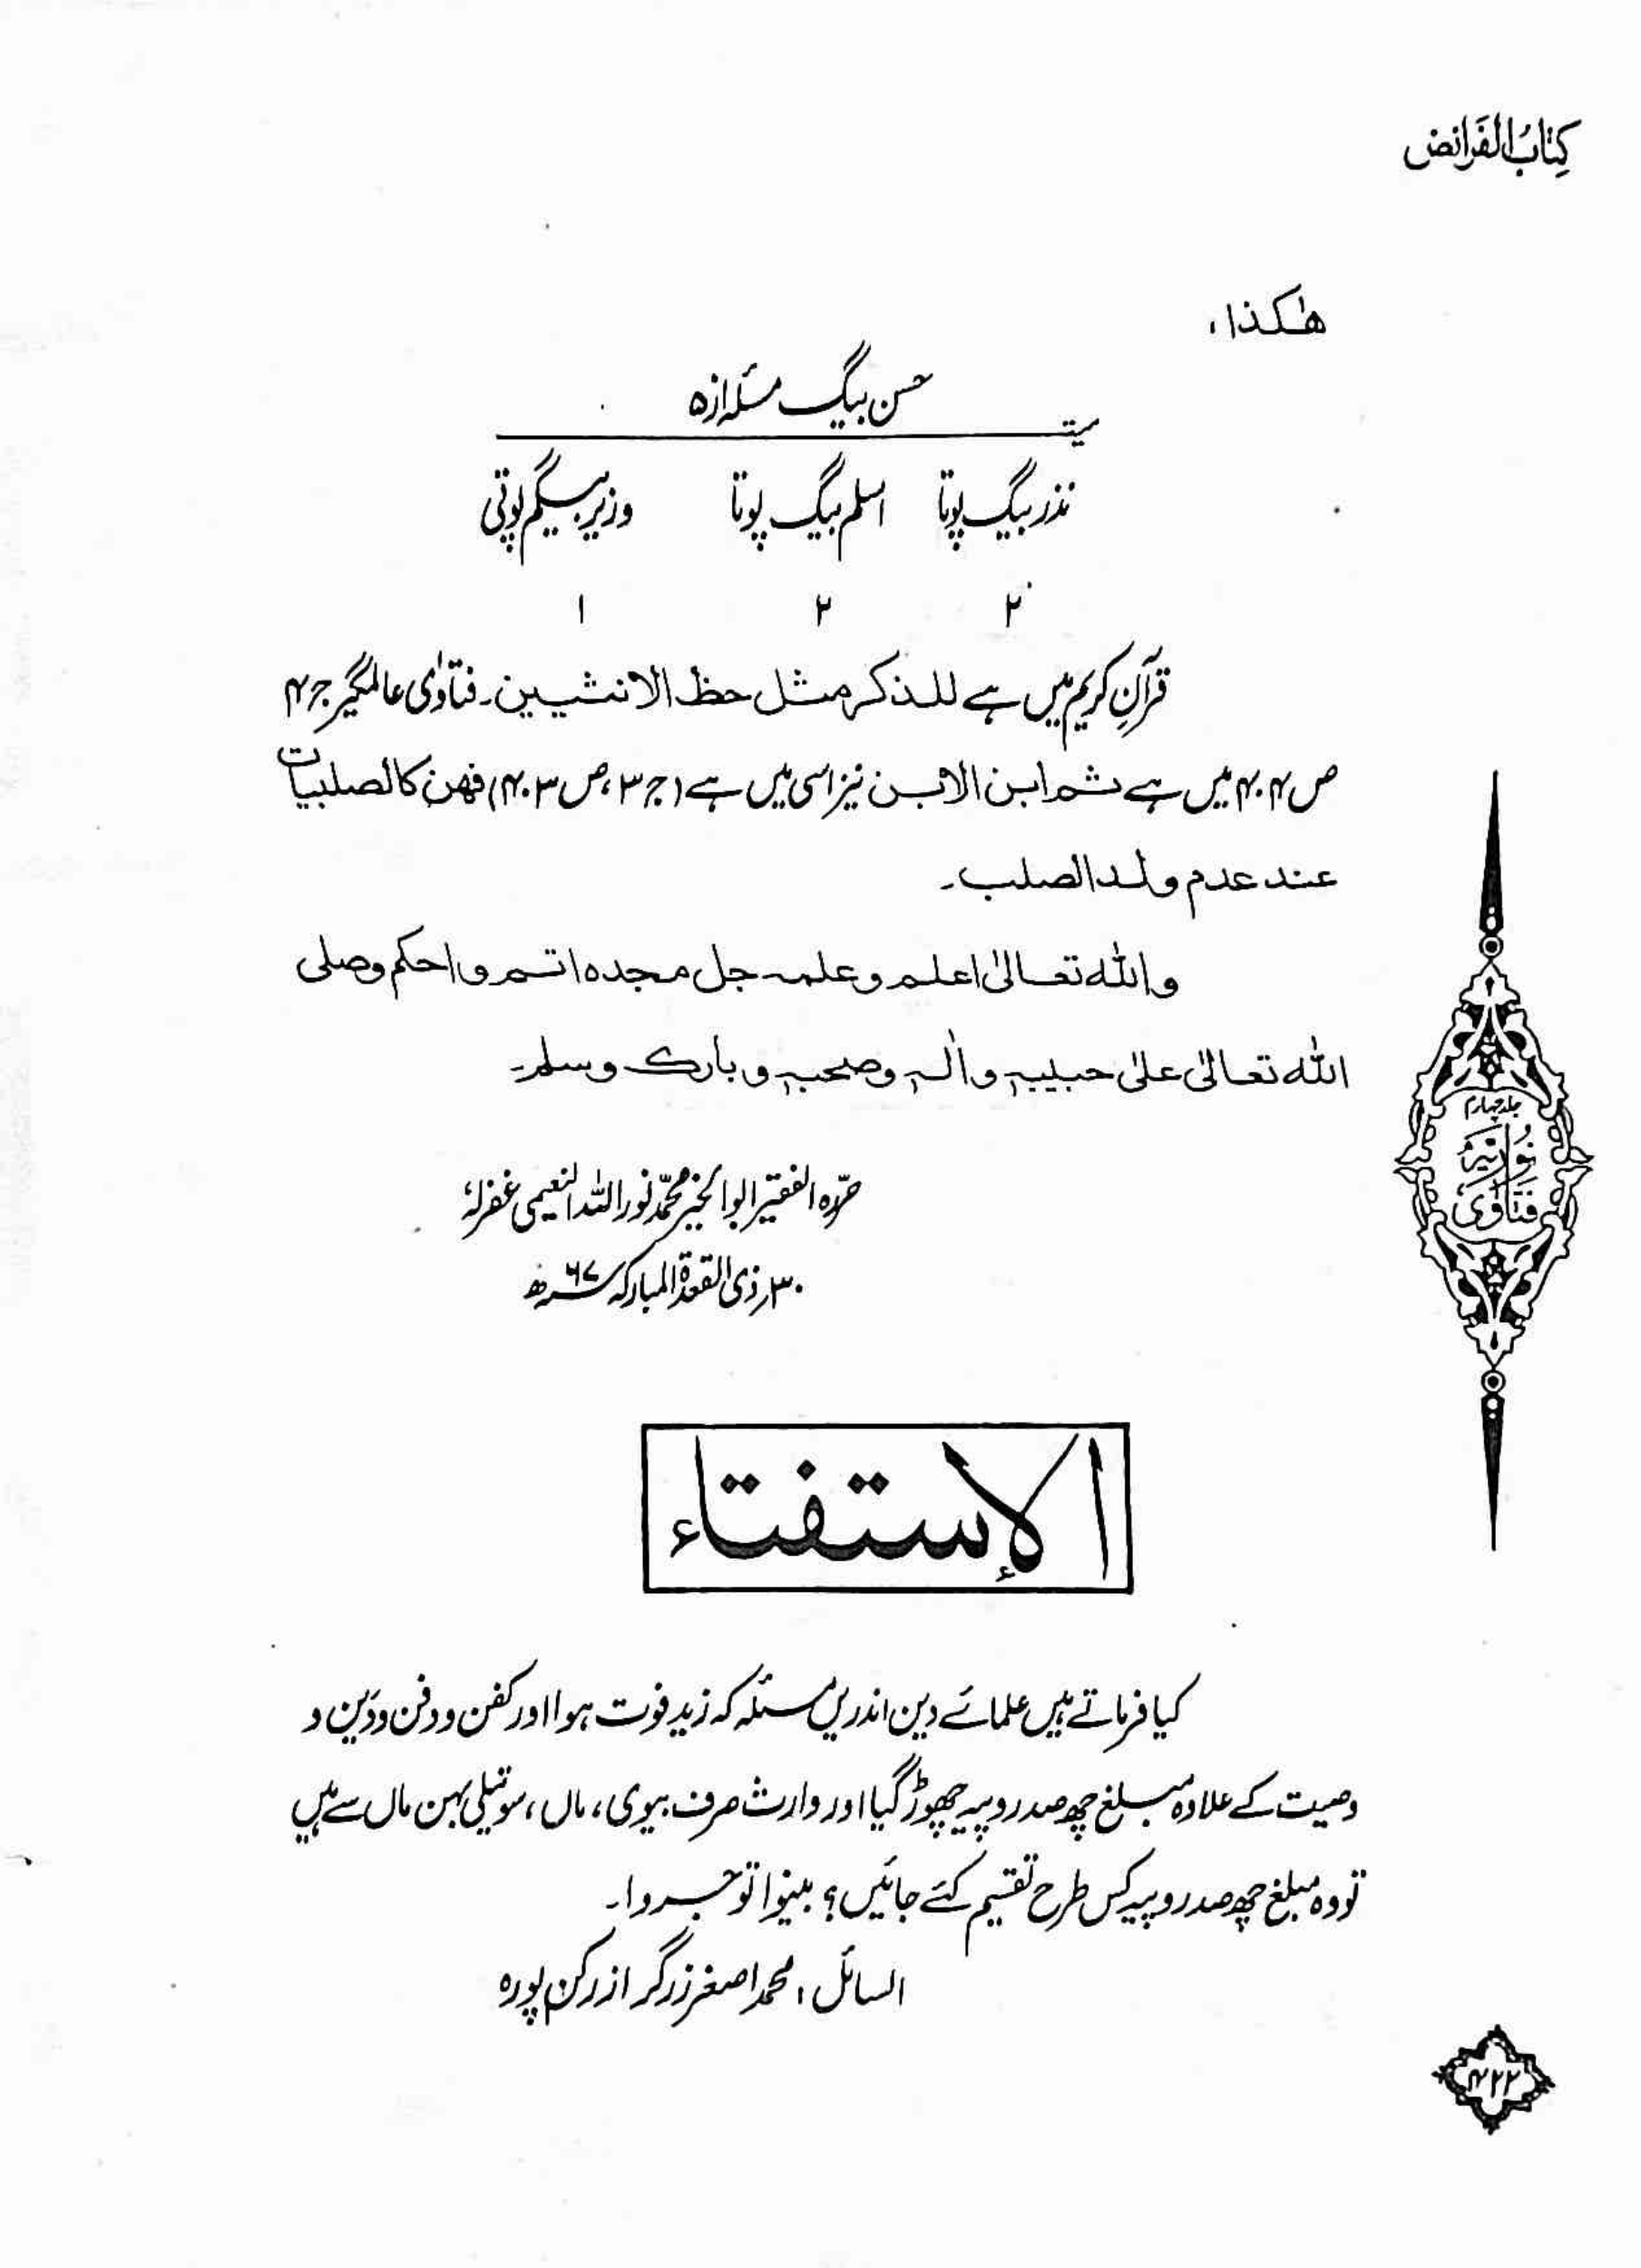 کِتَابُ الفَرائض
هٰکذا،
حسن بیگ مسئلہ از ۵
میت
نذر بیگ پوتا اسلم بیگ پوتا وزیر بیگم پوتی
۲ ۲ ۱
قرآنِ کریم میں ہے للذکر مثل حظ الانثیین۔ فتاوٰی عالمگیر ج ۴
ص ۴۰۴ میں ہے ثم ابن الابن نیز اسی میں ہے (ج ۳، ص ۴۰۳) فھن کالصلبیات
عند عدم ولد الصلب۔
واللہ تعالیٰ اعلم وعلمہ جل مجدہ اتم واحکم وصلی
اللہ تعالیٰ علیٰ حبیبہٖ واٰلہٖ وصحبہٖ وبارک وسلم۔
حرّرہ الفقیر ابوالخیر محمّد نور اللہ النعیمی غفرلہٗ
۳۰؍ ذی القعدۃ المبارکہ ۶۷ھ
الإستفتاء
کیا فرماتے ہیں علمائے دین اندریں مسئلہ کہ زید فوت ہوا اور کفن و دفن و دَین و
وصیت کے علاوہ مبلغ چھ صد روپیہ چھوڑ گیا اور وارث صرف بیوی، ماں، سوتیلی بہن ماں سے ہیں
تو وہ مبلغ چھ صد روپیہ کس طرح تقسیم کئے جائیں؟ بینوا توجروا۔
السائل، محمد اصغر زرگر از رکن پورہ
جلد چہارم
فتاویٰ نوریہ
۴۲۲